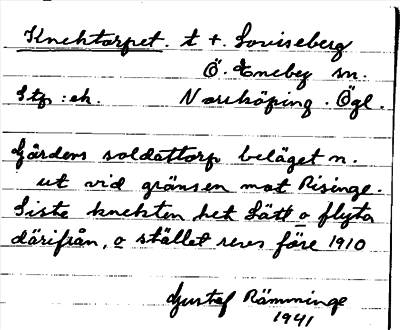 Knektorpet. t t. Loviseberg
Ö. Eneby sn.
Stp: ek. Norrköping. Ögl.
Gårdens soldattorp beläget n.
ut vid gränsen mot Risinge.
Siste knekten het Lätt o flytta
därifrån, o stället revs före 1910
Gustaf Rämminge
1941